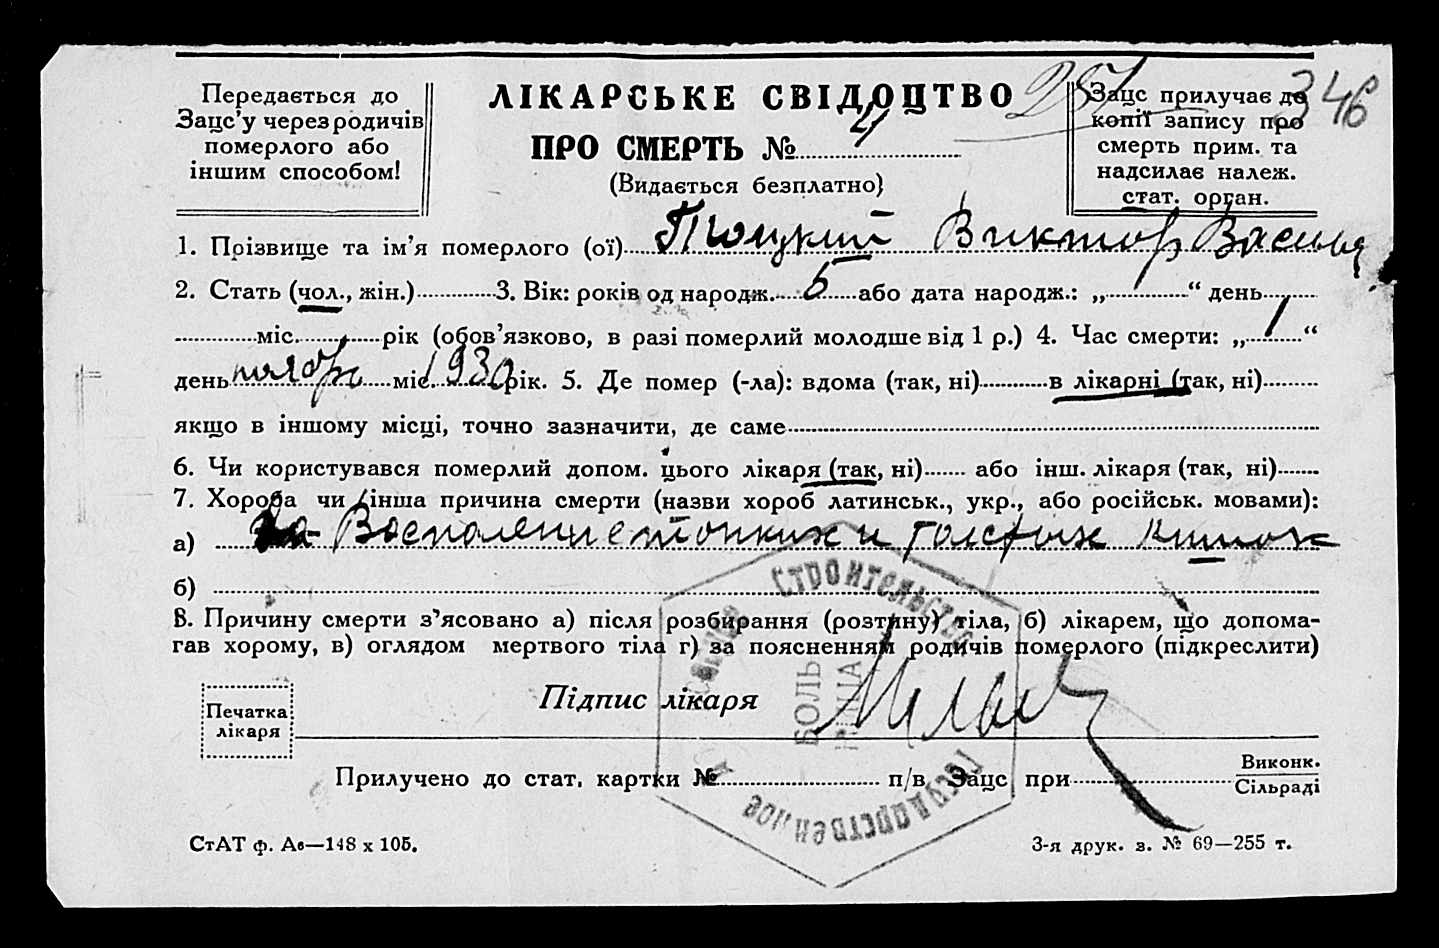 Передається до
Загс'у через родичів
померлого або
іншим способом!
ЛІКАРСЬКЕ СВІДОЦТВО
ПРО СМЕРТЬ №
(Видається безплатно)
Загс прилучає до
копії запису про
смерть прим. та
надсилає належ.
стат. орган.
346
1. Прізвище та ім'я померлого (ої) Виктор Василь
2. Стать (чол., жін.) 3. Вік: років од народж. 5 або дата народж.: „ “ день
міс. рік (обов'язково, в разі померлий молодше від 1 р.) 4. Час смерти: „ 1 “
день ноябр міс. 1930 рік. 5. Де помер (-ла): вдома (так, ні) в лікарні (так, ні)
якщо в іншому місці, точно зазначити, де саме
6. Чи користувався померлий допом. цього лікаря (так, ні) або інш. лікаря (так, ні)
7. Хороба чи інша причина смерти (назви хороб латинськ., укр., або російськ. мовами):
а) Воспаление тонких и толстых кишок
б)
8. Причину смерти з'ясовано а) після розбирання (розтину) тіла, б) лікарем, що допома-
гав хорому, в) оглядом мертвого тіла г) за поясненням родичів померлого (підкреслити)
Печатка
лікаря
Підпис лікаря
Строительство
БОЛЬ
НИЦА
Государственное
Прилучено до стат. картки № п/в Загс при Виконк.
Сільраді
СтАТ ф. Ав—148 х 105.
3-я друк. з. № 69—255 т.